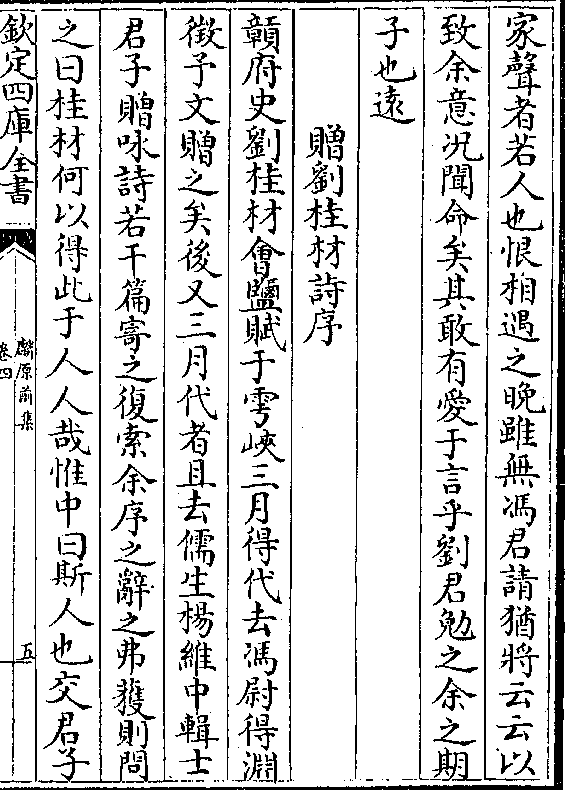 家聲者若人也恨相遇之晚雖無馮君請猶將云云以
致余意况聞命矣其敢有愛于言乎劉君勉之余之期
子也遠
贈劉桂材詩序
贛府史劉桂材會鹽賦于雩峽三月得代去馮尉得淵
徵予文贈之矣後又三月代者且去儒生楊維中輯士
君子贈咏詩若干篇寄之復索余序之辭之弗獲則問
之曰桂材何以得此于人人哉惟中曰斯人也交君子
欽定四庫全書
麟原前集
卷四
五